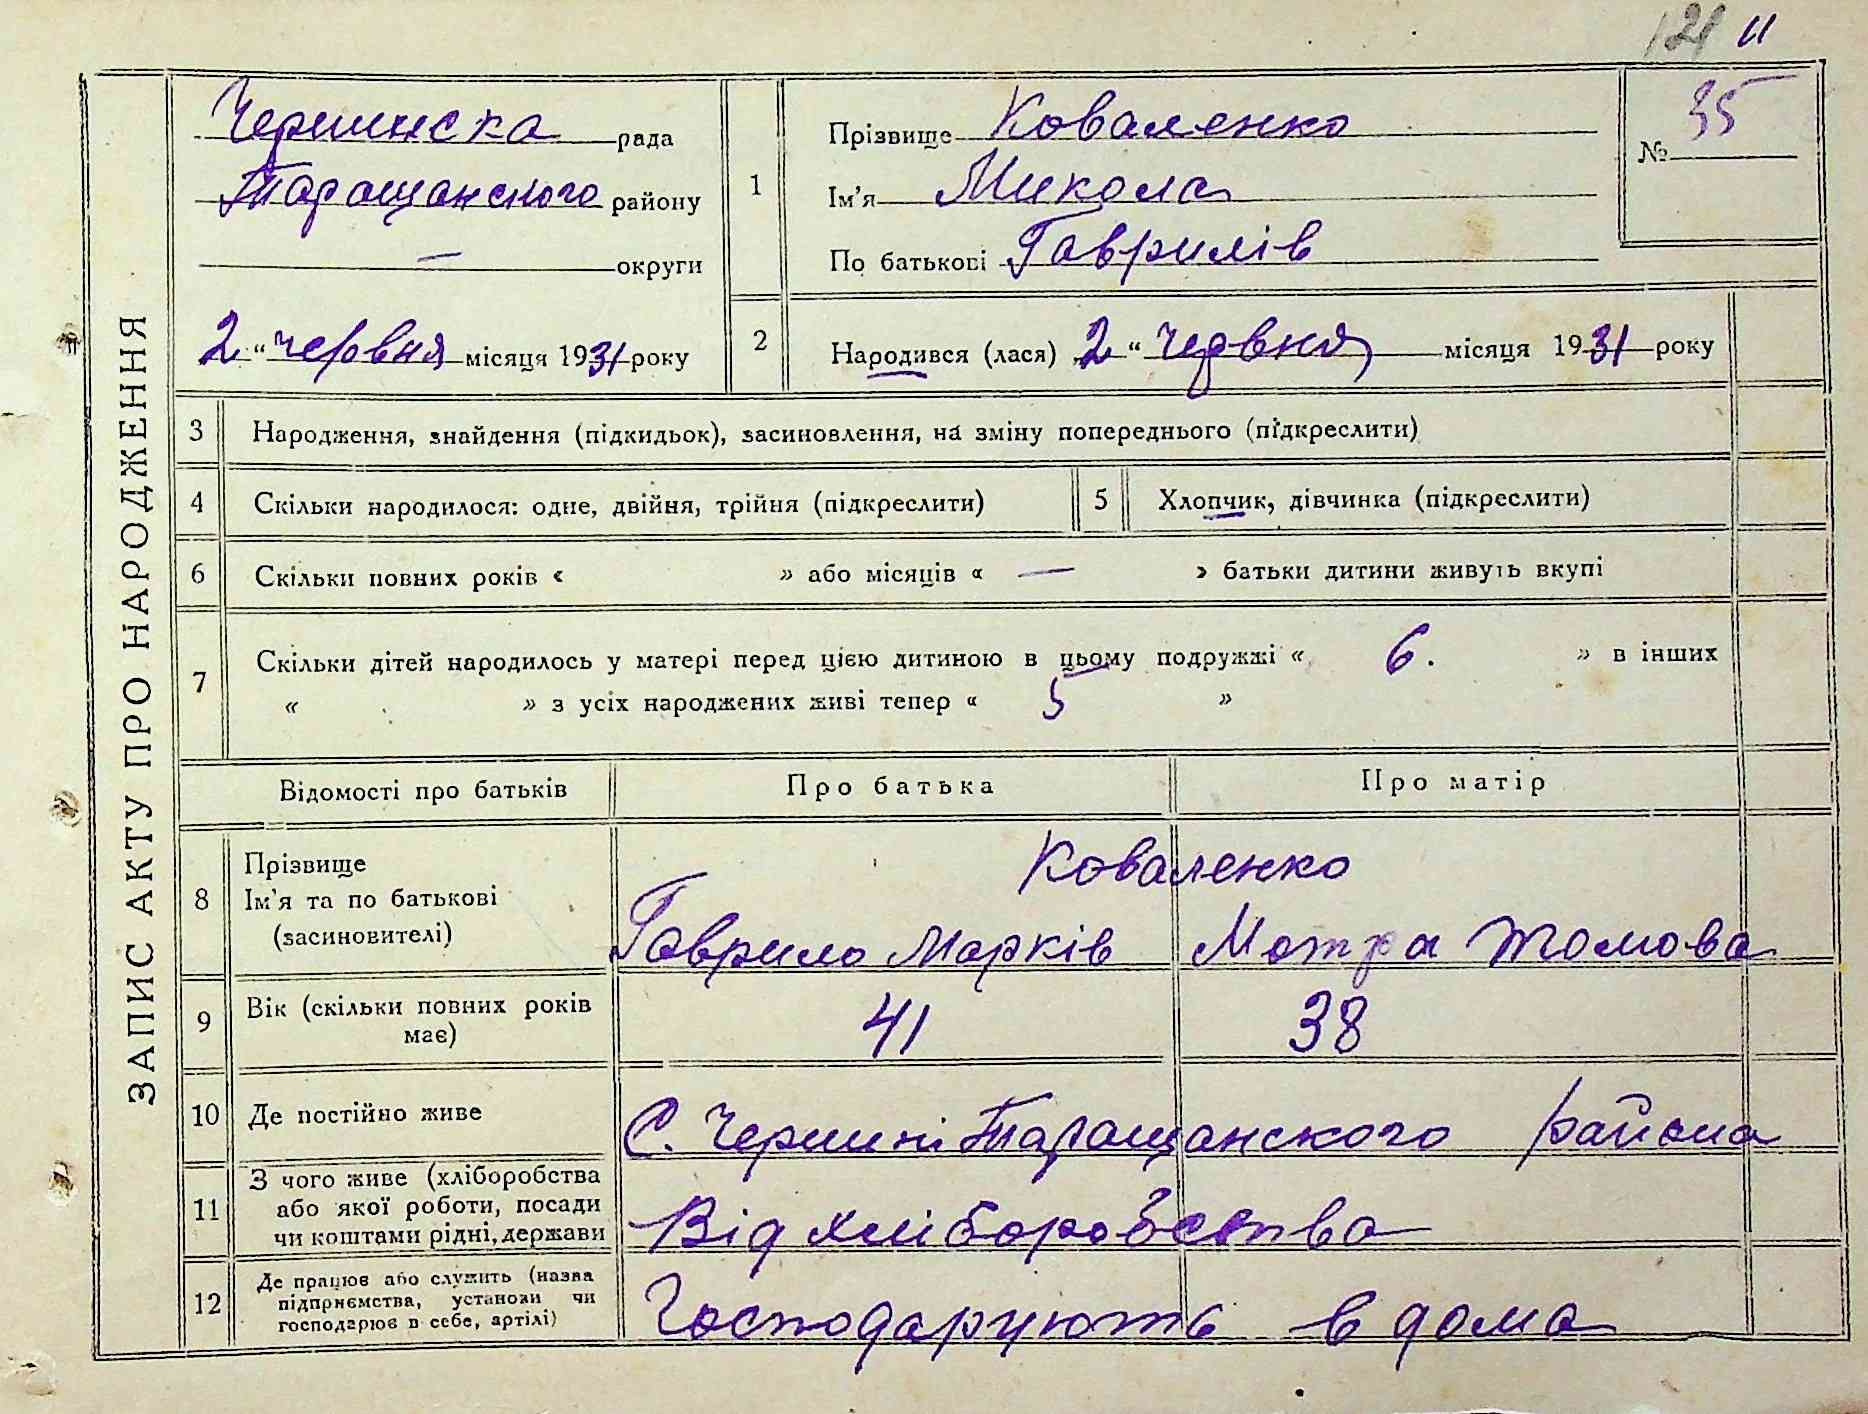 121 11
ЗАПИС АКТУ ПРО НАРОДЖЕННЯ
Черминска рада
Таращанського району
— округи
2 " червня місяця 1931 року
1
Прізвище Коваленко
Ім'я Микола
По батькові Гаврилів
№ 35
2
Народився (лася) 2 " Червня місяця 1931 року
3 Народження, знайдення (підкидьок), засиновлення, на зміну попереднього (підкреслити)
4 Скільки народилося: одне, двійня, трійня (підкреслити)
5 Хлопчик, дівчинка (підкреслити)
6 Скільки повних років « » або місяців « — » батьки дитини живуть вкупі
7 Скільки дітей народилось у матері перед цією дитиною в цьому подружжі « 6. » в інших
« » з усіх народжених живі тепер « 5 »
Відомості про батьків Про батька Про матір
8 Прізвище
Ім'я та по батькові
(засиновителі)
Коваленко
Гаврило Марків Мотра Томова
9 Вік (скільки повних років
має)
41 38
10 Де постійно живе
С. Чермині Таращанского района
11 З чого живе (хліборобства
або якої роботи, посади
чи коштами рідні, держави
Від хліборобства
12 Де працює або служить (назва
підприємства, установи чи
господарює в себе, артілі)
Господарюють в дома